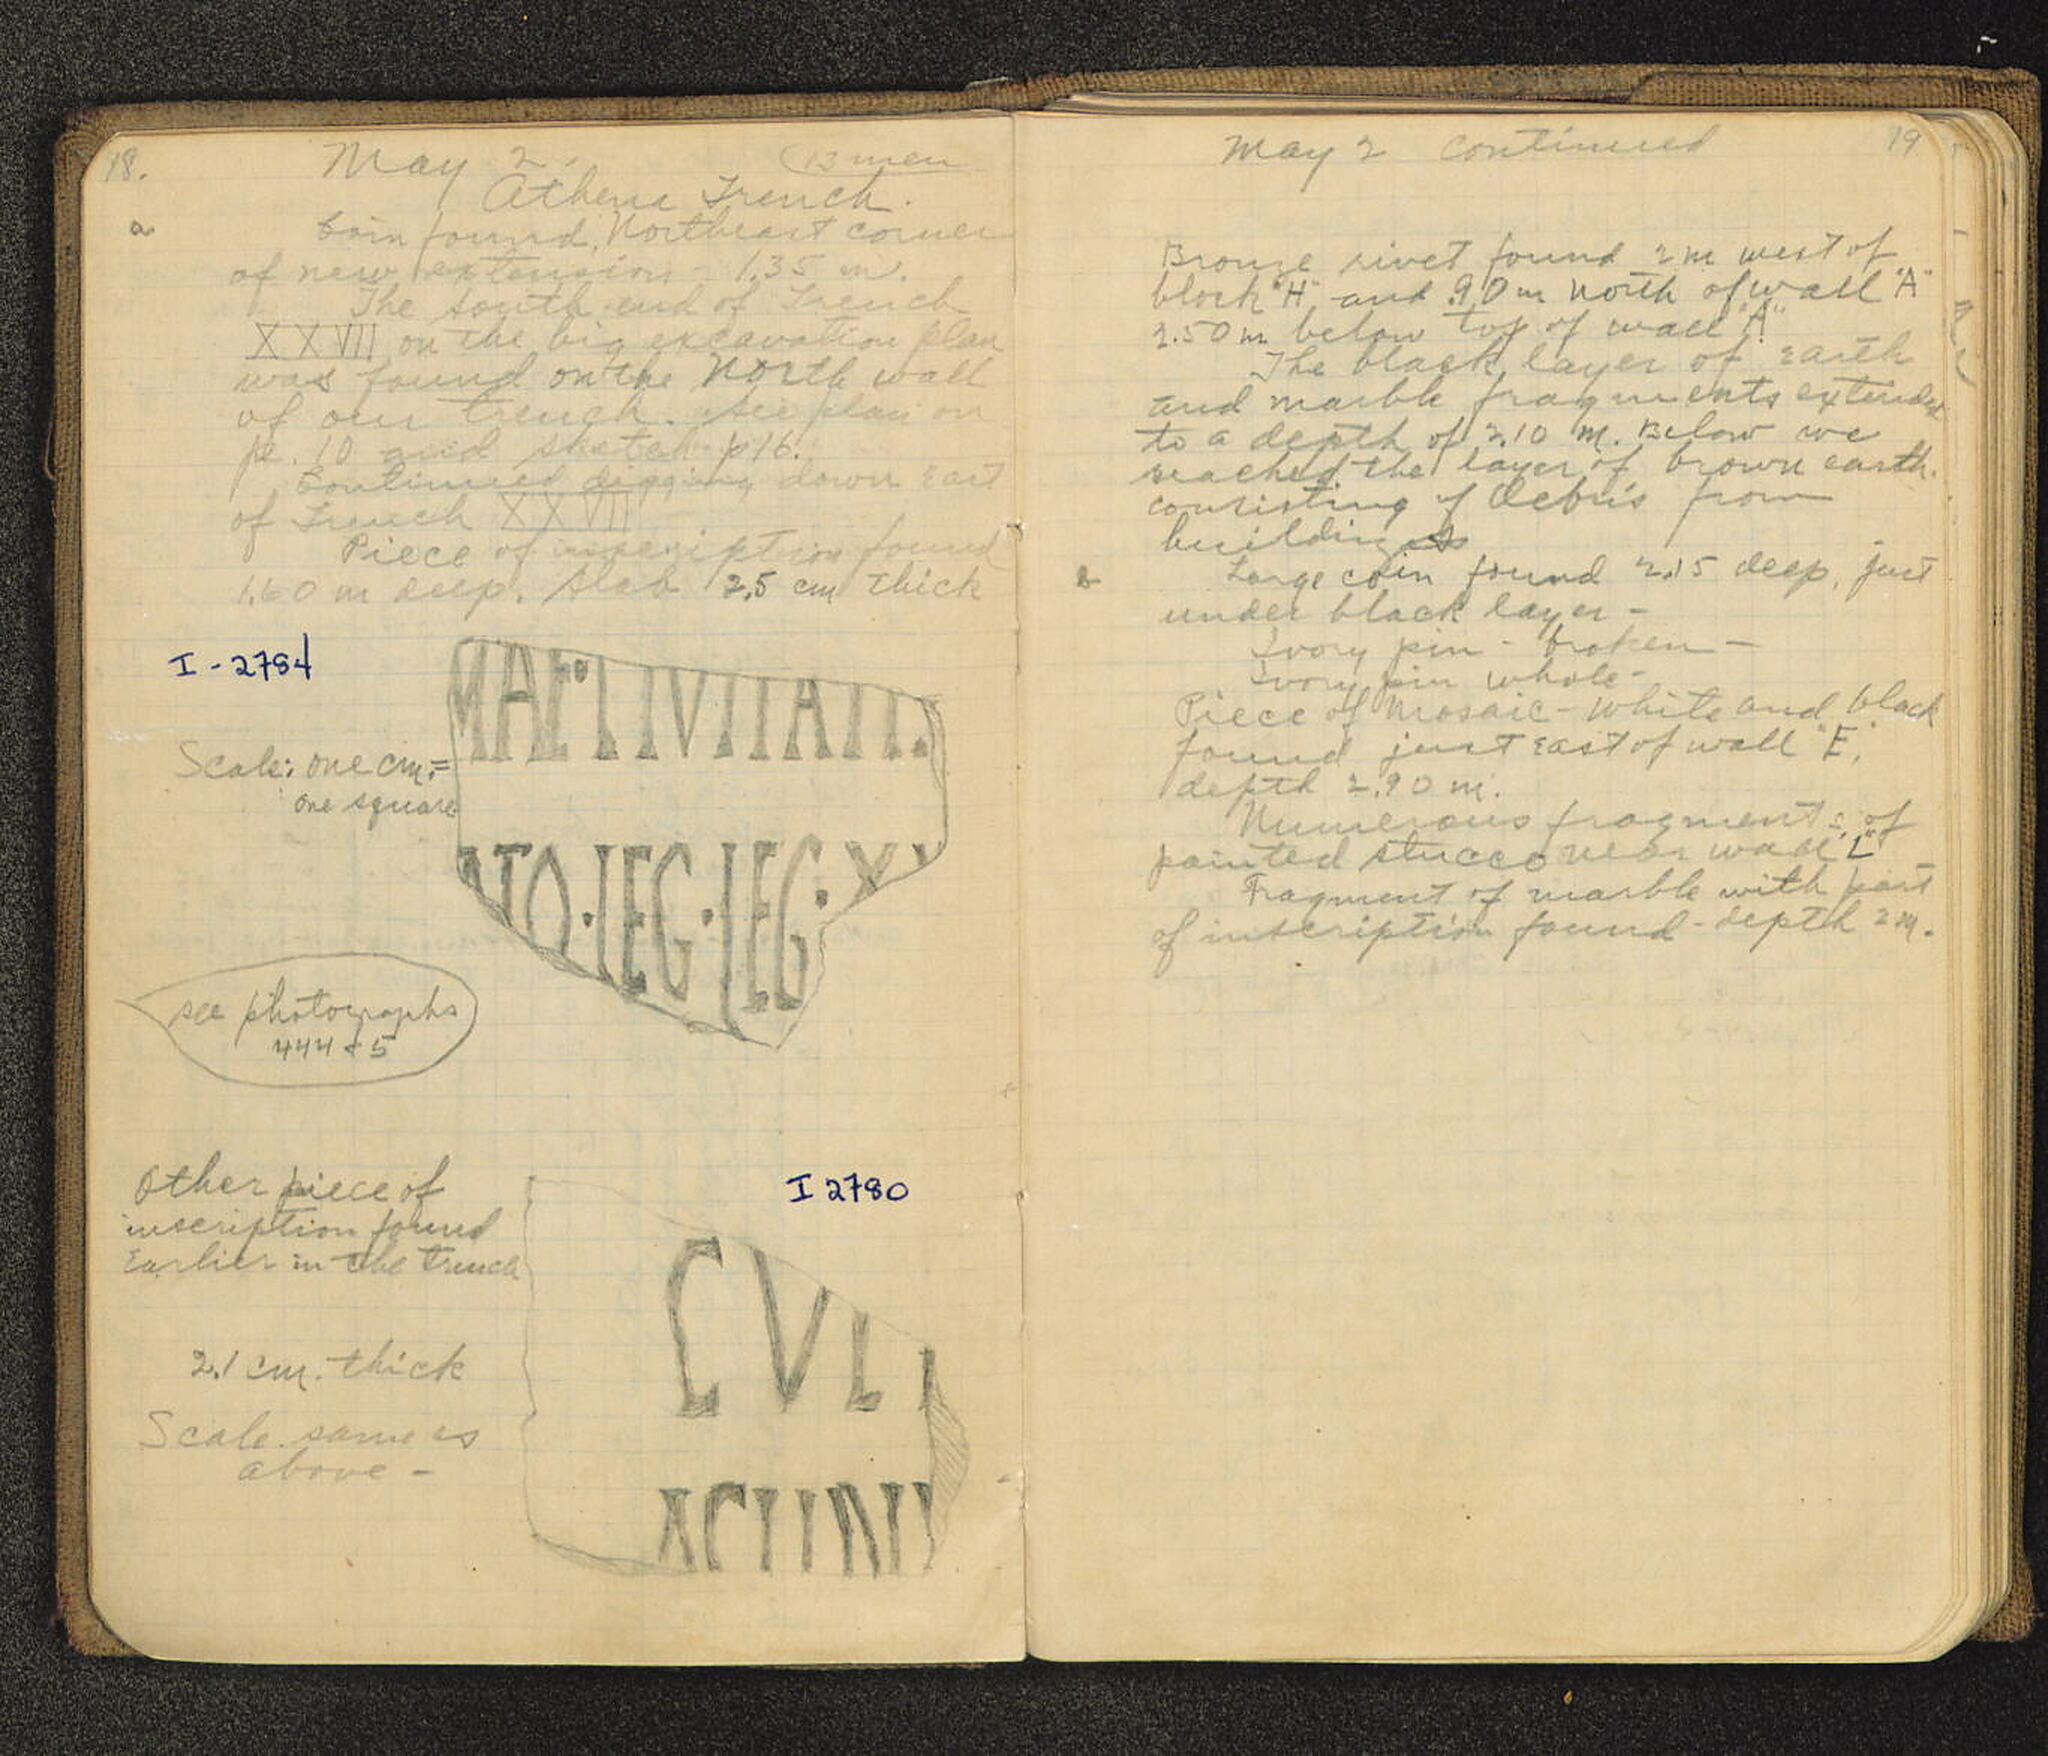 18.
May 2.
13 men
Athena Trench.
a
Coin found, Northeast corner
of new extension - 1.35 m.
The south end of Trench
XXVII on the big excavation plan
was found on the North wall
of our trench. See plan on
p. 10 and sketch p16.
Continued digging down East
of Trench XXVII
Piece of inscription found
1.60 m deep. Slab 2.5 cm thick
I-2784
MAE·TIVITATI
Scale: one cm. =
one square
NTO·LEG·LEG·X
see photographs
444 & 5
Other piece of
inscription found
Earlier in the trench
I 2780
CVL
2.1 cm. thick
Scale same as
above -
May 2 continued
19
Bronze rivet found 2m west of
block "H" and .90m North of wall "A"
2.50m below top of wall "A"
The black layer of Earth
and marble fragments extended
to a depth of 2.10 m. Below we
reached the layer of brown earth.
consisting of Debris from
buildings
b
Large coin found 2.15 deep, just
under black layer -
Ivory pin - broken -
Ivory pin whole -
Piece of Mosaic - white and black
found just East of wall "E,"
depth 2.90 m.
Numerous fragments of
painted stucco near wall "L"
Fragment of marble with part
of inscription found - depth 2m.